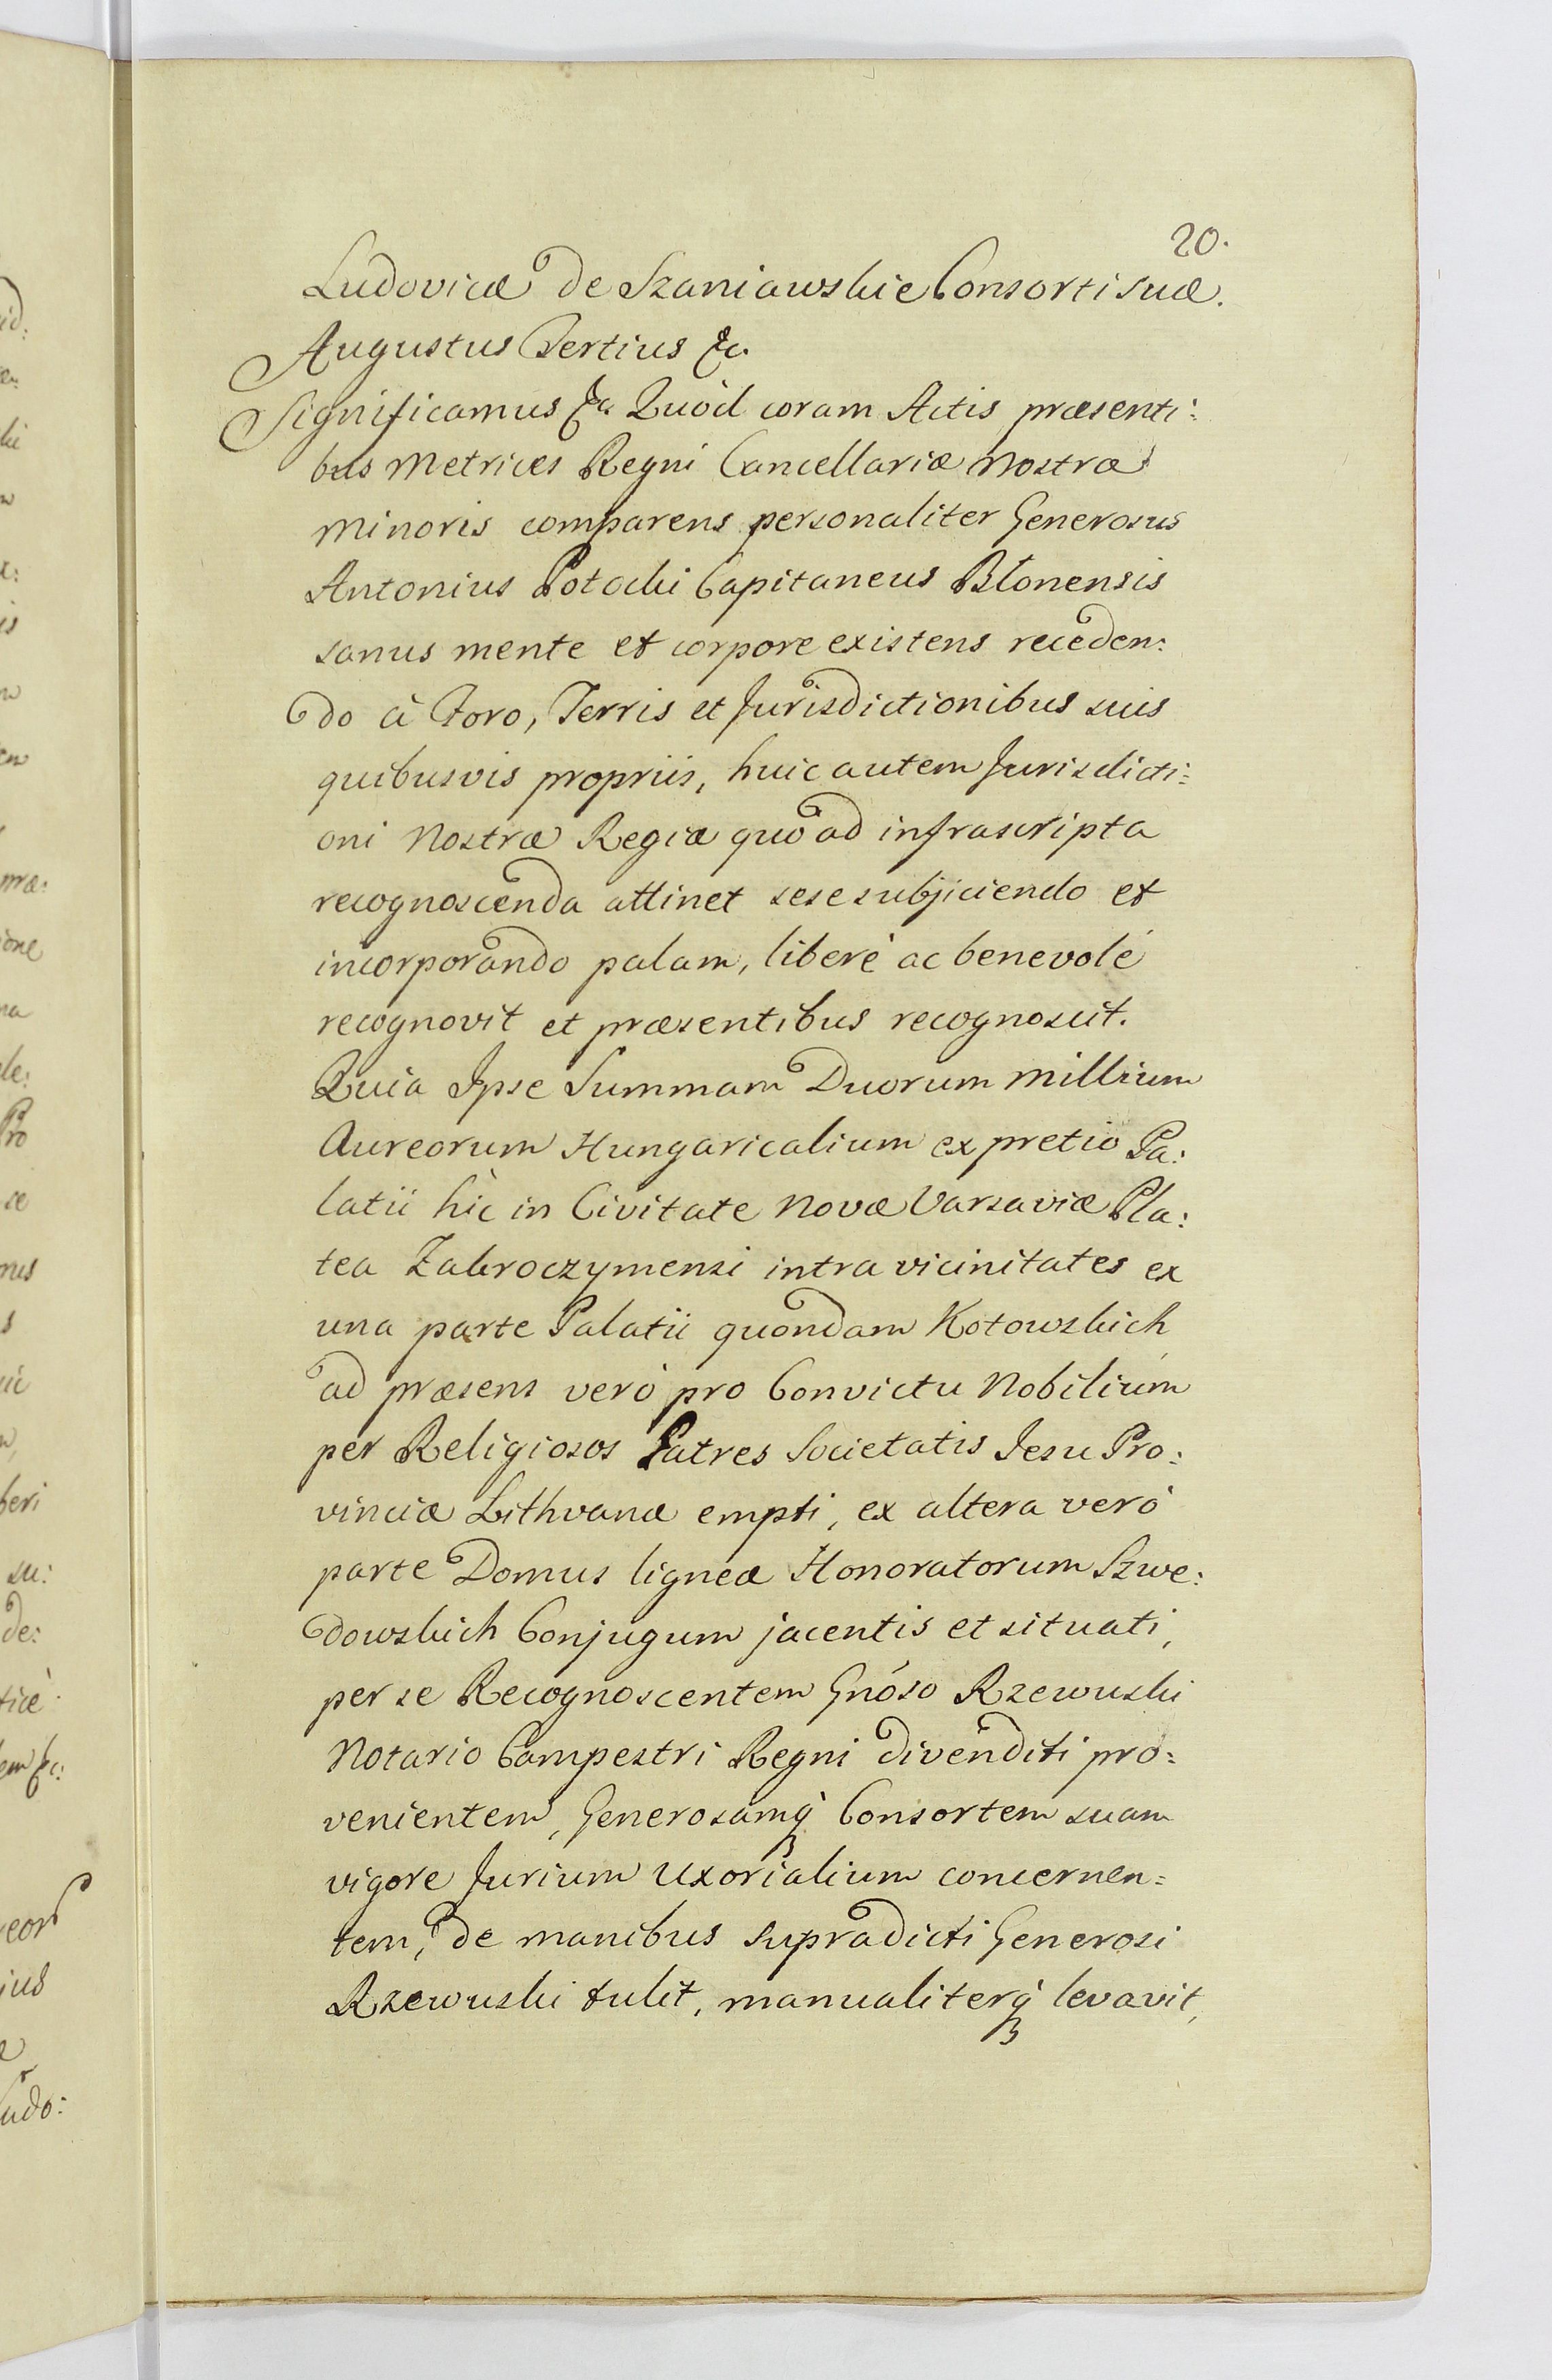 20.
Ludovicæ de Szaniawskie Consorti suæ.
Augustus Tertius &c.
Significamus &c. Quòd coram Actis præsenti:
bus Metrices Regni Cancellariæ Nostræ
Minoris comparens personaliter Generosus
Antonius Potocki Capitaneus Błonensis
sanus mente et corpore existens receden:
do à Foro, Terris et Jurisdictionibus suis
quibusvis propriis, huic autem Jurisdicti:
oni Nostræ Regiæ quo ad infrascripta
recognoscenda attinet sese subjiciendo et
incorporando palam, liberè ac benevolè
recognovit et præsentibus recognoscit.
Quia Ipse Summam Duorum Millium
Aureorum Hungaricalium ex pretio Pa:
latii hìc in Civitate Novæ Varsaviæ Pla:
tea Zakroczymensi intra vicinitates ex
una parte Palatii quondam Kotowskich
ad præsens verò pro Convictu Nobilium
per Religiosos Patres Societatis Jesu Pro:
vinciæ Lithvanæ empti, ex altera verò
parte Domus ligneæ Honoratorum Szwe:
dowskich Conjugum jacentis et situati,
per se Recognoscentem Gnóso Rzewuski
Notario Campestri Regni divenditi pro:
venientem, Generosamq́ Consortem suam
vigore Jurium Uxorialium concernen:
tem, de manibus supradicti Generosi
Rzewuski tulit, manualiterq́ levavit,